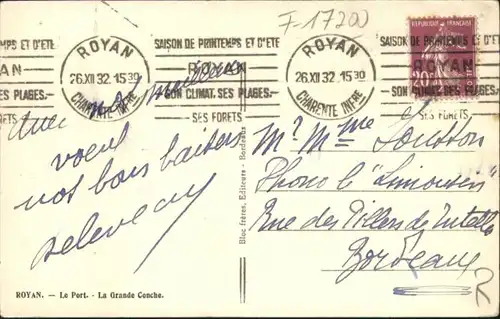 F-17200
MPS ET D'ETE
ROYAN
SAISON DE PRINTEMPS ET D'ETE
ROYAN
SAISON DE PRINTEMPS ET D'ETE
AN
26.XII 32. 15 30
ROYAN
26.XII 32. 15 30
ROYAN
PLAGES.-
CHARENTE INFRE
SON CLIMAT. SES PLAGES.-
CHARENTE INFRE
SON CLIMAT. SES PLAGES.-
RETS
SES FORETS
SES FORETS
REPUBLIQUE FRANÇAISE
20
Avec nos meilleurs
voeux
nos bons baisers
Mr Mme
Phono le "Limousin"
Rue des Piliers de Tutelle
Bordeaux
R
Bloc frères, Editeurs - Bordeaux
ROYAN. - Le Port. - La Grande Conche.